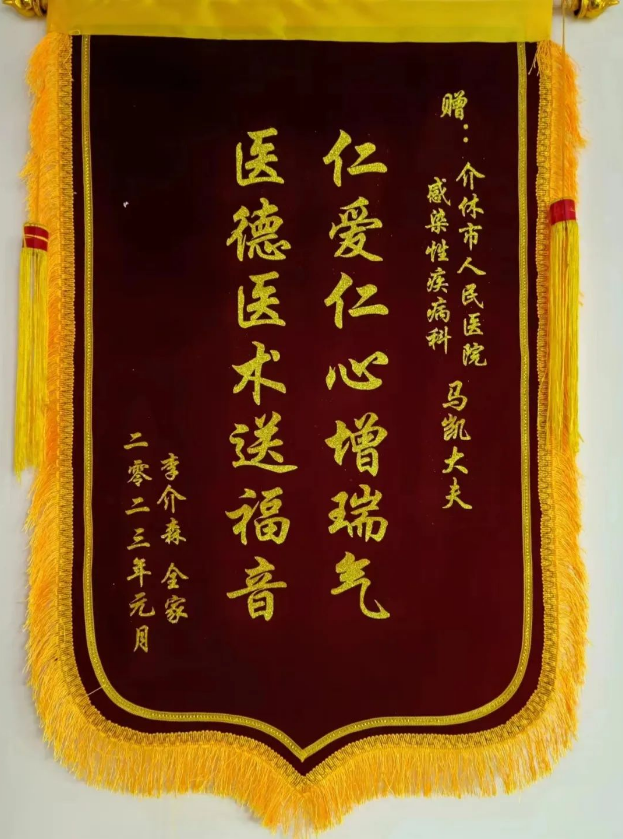 赠：介休市人民医院
感染性疾病科 马凯大夫
仁爱仁心增瑞气
医德医术送福音
李介森 全家
二零二三年元月